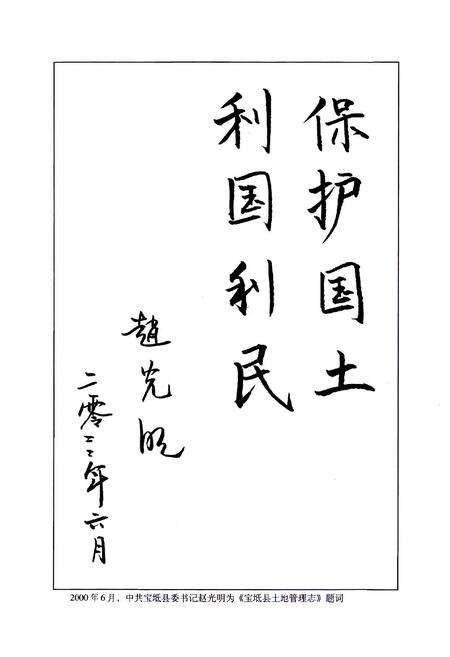 保护国土
利国利民
趙光明
二零零零年六月
2000年6月，中共宝坻县委书记赵光明为《宝坻县土地管理志》题词